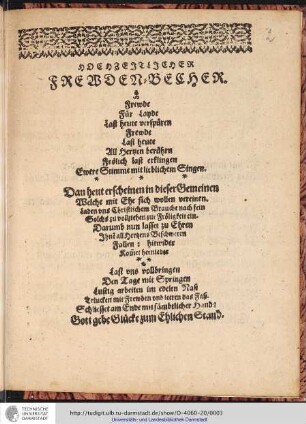 2
HOCHZEITLICHER
FREWDEN-BECHER.
Frewde
Für Leyde
Last heute verspüren
Frewde
Last heute
All Hertzen berührn
Frölich last erklingen
Ewere Stimme mit lieblichem Singen.
* * *
Dan heut erscheinen in dieser Gemeinen
Welche mit Ehe sich wollen vereinen.
Laden uns Christlichem Brauche nach fein
Solchs zu vollziehen zur Frölichkeit ein.
Darumb nun lasset zu Ehren
Ihnn all Hertzens Beschweren
Fallen: hiernider
Kommet hernieder
* * *
Last uns vollbringen
Den Tage mit Springen
Lustig arbeiten im edelen Naß
Trincken mit Frewden und leeren das Faß.
Schliesset am Ende mit sämbtlicher Hand:
Gott gebe Glücke zum Ehlichen Stand.
TECHNISCHE UNIVERSITÄT DARMSTADT
http://tudigit.ulb.tu-darmstadt.de/show/O-4060-20/0003
Universitäts- und Landesbibliothek Darmstadt